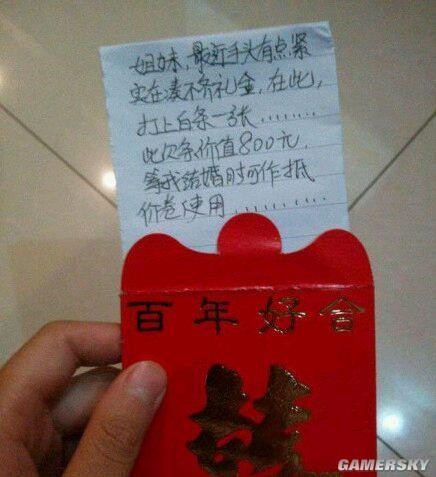 姐妹,最近手头有点紧
实在凑不齐礼金,在此,
打上白条一张........
此欠条价值800元,
等我结婚时可作抵
价卷使用..........
百年好合
囍
GAMERSKY